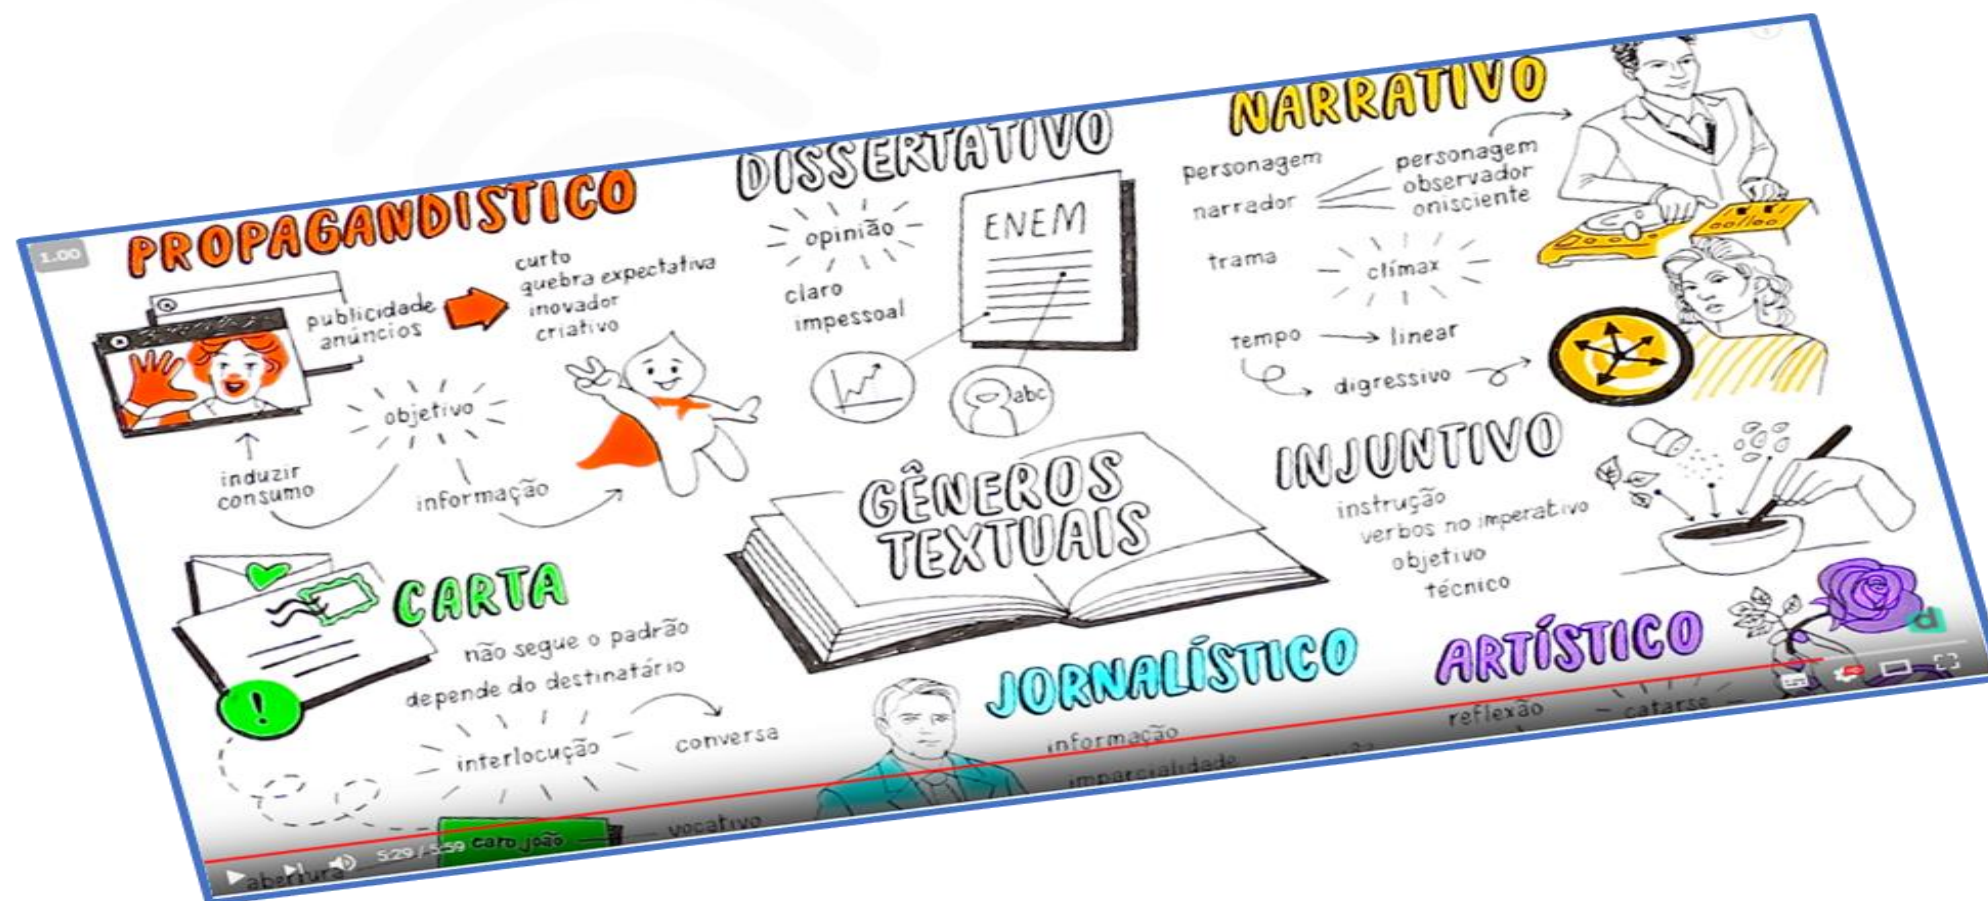 1.00
PROPAGANDISTICO
publicidade
anúncios
curto
quebra expectativa
inovador
criativo
objetivo
induzir
consumo
informação
DISSERTATIVO
opinião
claro
impessoal
ENEM
abc
NARRATIVO
personagem
narrador
personagem
observador
onisciente
trama
clímax
tempo
linear
digressivo
GÊNEROS
TEXTUAIS
INJUNTIVO
instrução
verbos no imperativo
objetivo
técnico
CARTA
não segue o padrão
depende do destinatário
interlocução
conversa
caro joão
vocativo
abertura
JORNALÍSTICO
informação
imparcialidade
ARTÍSTICO
reflexão
catarse
d
5:29 / 5:59